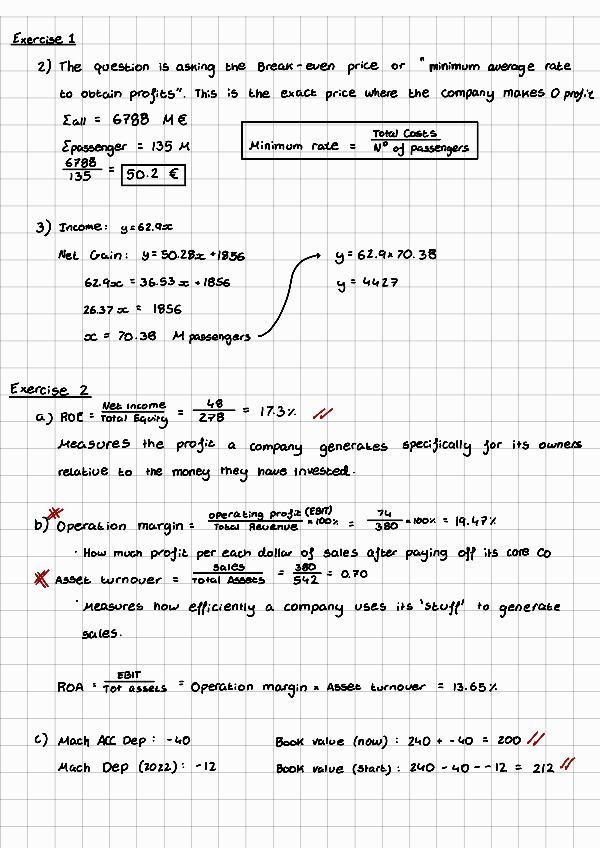 Exercise 1
2) The question is asking the Break-even price or "minimum average rate
to obtain profits". This is the exact price where the company makes 0 profit
Σall = 6788 M€
Σpassenger = 135 M
6788 / 135 = 50.2 €
Minimum rate = Total Costs / Nº of passengers
3) Income: y=62.9x
Net Gain: y=50.28x +1856
62.9x = 36.53x +1856
26.37x = 1856
x = 70.38 M passengers
y = 62.9×70.38
y = 4427
Exercise 2
a) ROE = Net income / Total Equity = 48 / 278 = 17.3% //
Measures the profit a company generates specifically for its owners
relative to the money they have invested.
b) Operation margin = operating profit (EBIT) / Total Revenue × 100% = 74 / 380 × 100% = 19.47%
· How much profit per each dollar of sales after paying off its core Co
Asset turnover = sales / Total Assets = 380 / 542 = 0.70
· Measures how efficiently a company uses its 'stuff' to generate
sales.
ROA = EBIT / Tot assets = Operation margin × Asset turnover = 13.65%
c) Mach ACC Dep : -40
Mach Dep (2022): -12
Book value (now) : 240 + -40 = 200 //
Book value (start) : 240 - 40 - -12 = 212 //